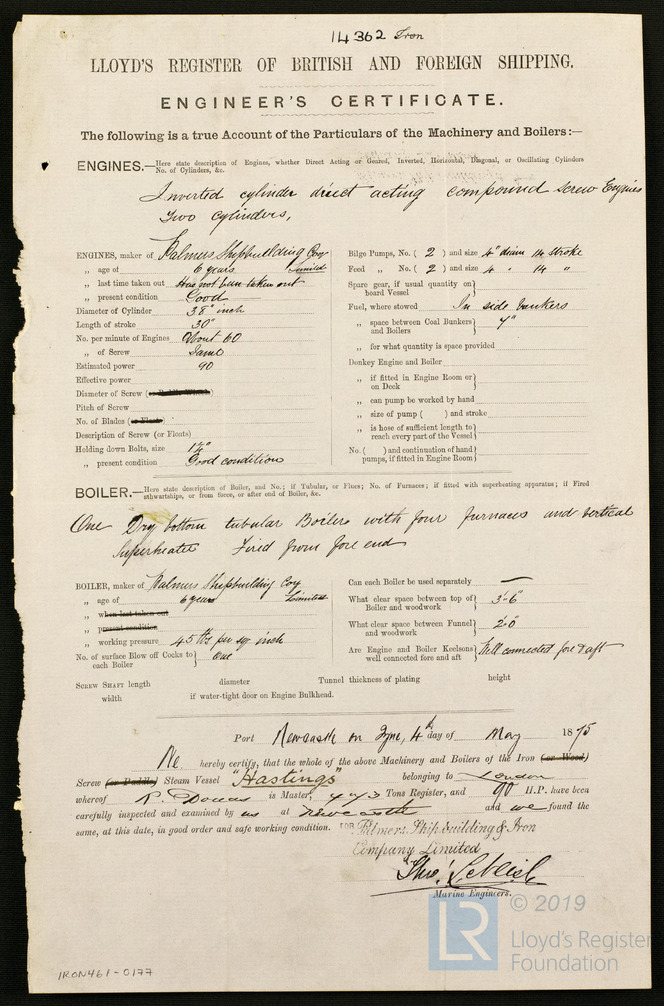 14362 Iron
LLOYD'S REGISTER OF BRITISH AND FOREIGN SHIPPING.
ENGINEER'S CERTIFICATE.
The following is a true Account of the Particulars of the Machinery and Boilers:—
ENGINES.—Here state description of Engines, whether Direct Acting or Geared, Inverted, Horizontal, Diagonal, or Oscillating Cylinders
No. of Cylinders, &c.
Inverted cylinder direct acting compound screw Engines
Two cylinders,
ENGINES, maker of Palmers Shipbuilding Coy
Limited
„ age of 6 years
„ last time taken out Has not been taken out
„ present condition Good
Diameter of Cylinder 38" inch
Length of stroke 30"
No. per minute of Engines About 60
„ of Screw Same
Estimated power 90
Effective power
Diameter of Screw (or Paddle Wheel)
Pitch of Screw
No. of Blades (or Floats)
Description of Screw (or Floats)
Holding down Bolts, size
„ present condition Good condition
Bilge Pumps, No. ( 2 ) and size 4" diam 14 stroke
Feed „ No. ( 2 ) and size 4 " 14 "
Spare gear, if usual quantity on
board Vessel
Fuel, where stowed In side bunkers
„ space between Coal Bunkers
and Boilers 7"
„ for what quantity is space provided
Donkey Engine and Boiler
„ if fitted in Engine Room or
on Deck
„ can pump be worked by hand
„ size of pump ( ) and stroke
„ is hose of sufficient length to
reach every part of the Vessel
No. ( ) and continuation of hand
pumps, if fitted in Engine Room
BOILER.—Here state description of Boiler, and No.; if Tubular, or Flues; No. of Furnaces; if fitted with superheating apparatus; if Fired
athwartships, or from fore, or after end of Boiler, &c.
One Dry bottom tubular Boiler with four furnaces and vertical
Superheater Fired from fore end
BOILER, maker of Palmers Shipbuilding Coy
Limited
„ age of 6 years
„ when last taken out
„ present condition
„ working pressure 45 lbs per sq inch
No. of surface Blow off Cocks to
each Boiler One
Can each Boiler be used separately —
What clear space between top of
Boiler and woodwork 3'-6"
What clear space between Funnel
and woodwork 2'-0"
Are Engine and Boiler Keelsons
well connected fore and aft Well connected fore & aft
SCREW SHAFT length diameter Tunnel thickness of plating height
width if water-tight door on Engine Bulkhead.
Port Newcastle on Tyne, 4th day of May 1875
We hereby certify, that the whole of the above Machinery and Boilers of the Iron (or Wood)
Screw (or Paddle) Steam Vessel "Hastings" belonging to London
whereof R. is Master, Tons Register, and 90 H.P. have been
carefully inspected and examined by us at Newcastle and we found the
same, at this date, in good order and safe working condition. FOR Palmers Shipbuilding & Iron
Company Limited
Marine Engineers.
© 2019
LR
Lloyd's Register
Foundation
IRON461-0177